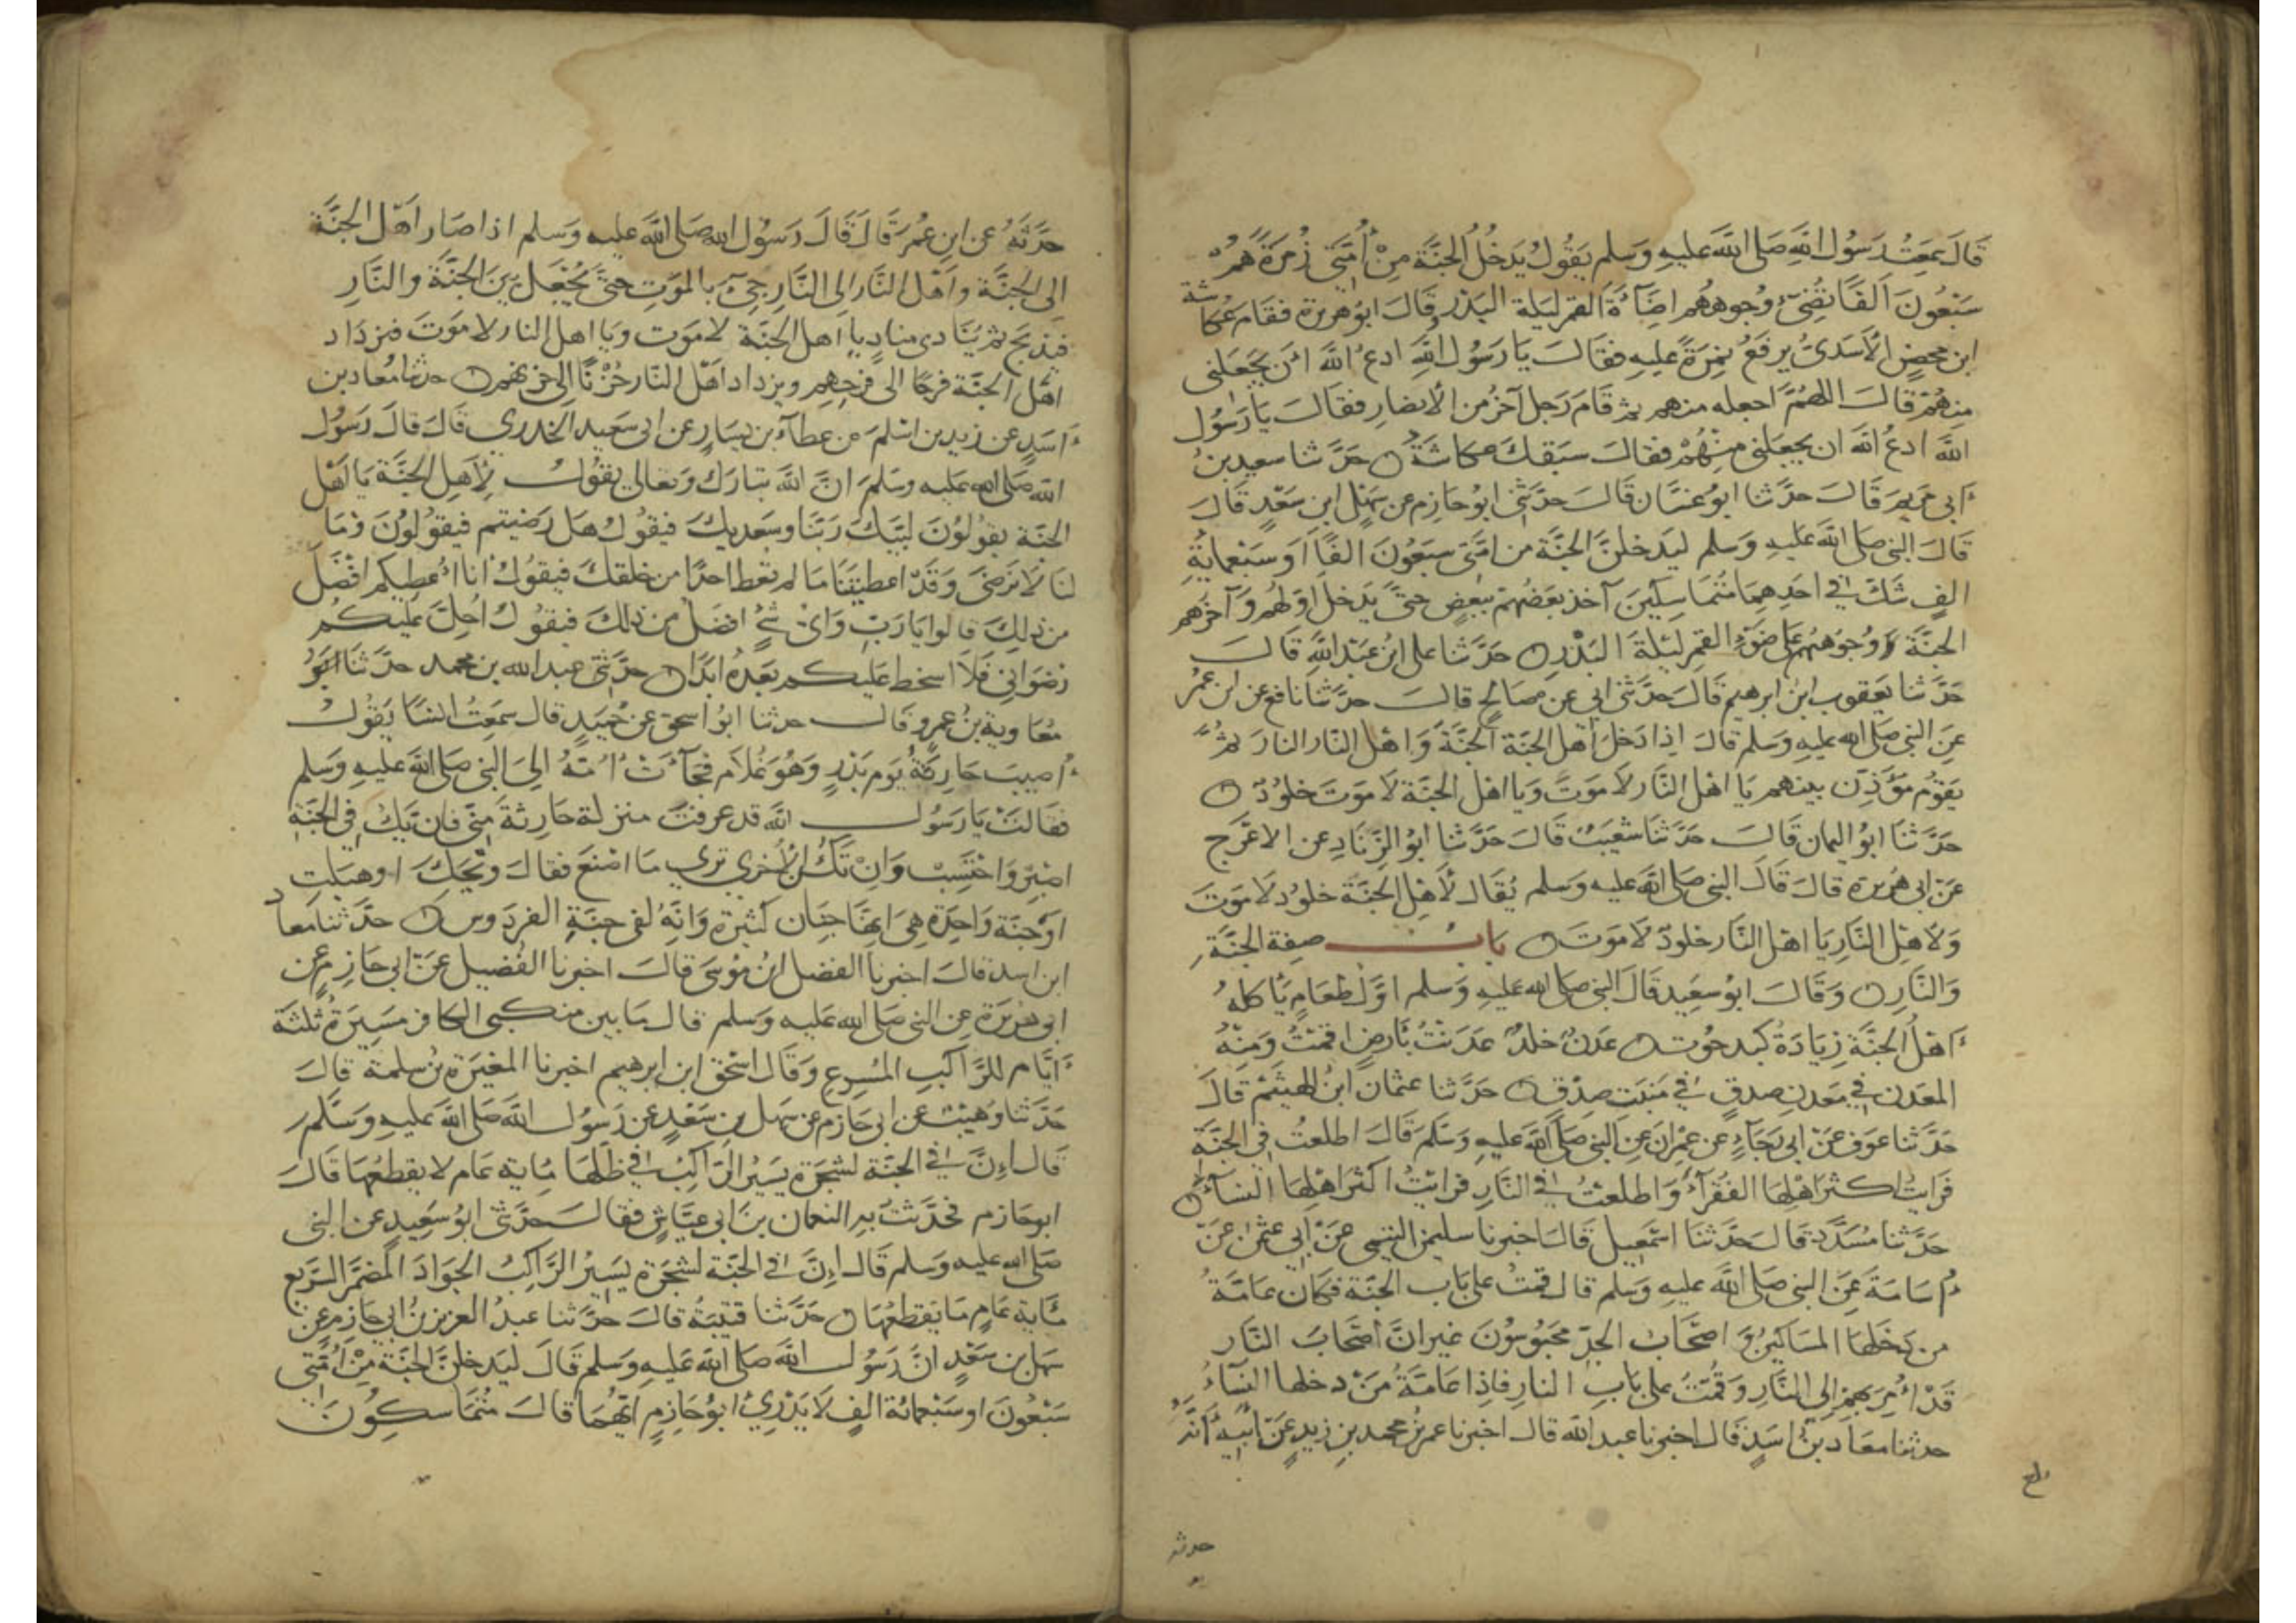 قَالَ سَمِعْتُ رَسُولَ اللهِ صَلَى اللهَ عَليهِ وَسَلم يَقُولُ يَدخُلُ الجنَّةَ مِنْ أُمَّتِي زُمرَةٌ هُمْ
سَبْعُونَ اَلفًا تُضِيءُ وُجوههُم اضَآءَةَ القمرِ لَيلَةَ البَدْرِ وقَالَ ابوُهريرة فقَام عُكاشة
ابن محصنٍ الأسَدىُّ يرفَعُ نَمِرَةً عَليهِ فقَالَ يَا رَسُولَ اللهِ ادعُ اللهَ أنْ يَجْعَلنى
مِنهُمْ قَالَ اللهُمَّ اجعله منهم ثم قَامَ رَجل آخرُ من الأنصَارِ فقَالَ يَا رَسُولَ
اللهِ ادعُ اللهَ ان يجعَلنى مِنْهُمْ فقالَ سَبَقكَ عكاشَةُ ۝ حَدَّثنا سعيد بنُ
أبى مَريَمَ قَالَ حدَّثنا ابوُ غسَّان قَالَ حدَّثَنى ابوُ حَازِم عن سَهْلِ ابن سَعْدٍ قَالَ
قَالَ النبى صَلى اللهَ عَليهِ وَسَلم ليَدخلنَّ الجنَّةَ من امَّتى سَبْعُونَ الفًا اَو سَبْعمايَةِ
الفٍ شَكَّ فى احَدِهِمَا مُتَمَاسِكينَ آخذ بَعضُهُمْ ببعضٍ حتَّى يَدخلَ اوَلهُم وَآخرهم
الجنَّةَ وَوُجوُههُم على ضَوْءِ القمرِ ليْلةَ البَدْرِ ۝ حَدَّثنا على ابنُ عَبْدِ اللهِ قَالَ
حَدَّثنا يَعقوب ابنُ ابرهيم قَالَ حدَّثنى ابى عن صَالحٍ قالَ حدَّثنا نافع عن ابن عمرُ
عَن النبى صَلى الله عَليهِ وَسَلم قالَ اِذا دَخلَ اَهْل الجنَّة الجنَّةَ وَاهْل النَّار النارَ ثمُ
يَقوُم مؤَذِّن بينهم يَا اهْل النَّار لاَ موَتَ وَيَا اهْل الجنَّة لاَ موَتَ خلوُدٌ ۝
حَدَّثنَا ابوُ اليمان قَالَ حَدَّثنَا شعَيبٌ قَالَ حَدَّثنا ابوُ الزِّنَادِ عن الاعْرَج
عَنْ ابى هُريرَة قَالَ قَالَ النبى صَلى الله عَليه وَسلم يُقَال لأَهْل الجنَّة خلوُد لاَ موَتَ
وَلاهْلِ النَّارِ يَا اهْل النَّار خلودٌ لاَ مَوَتَ ۝ بَابُ صِفة الجنَّةِ
وَالنَّارِ ۝ وَقَالَ ابوُ سَعِيد قَالَ النبى صَلى الله عَليهِ وَسلم اوَّلُ طعَامٍ يَأكلهُ
أَهْلُ الجنَّةِ زيَادَةُ كبد حُوت ۝ عَدن خلدٌ عَدَنْتُ بأَرضٍ اقمتُ وَمِنْهُ
المعَدن فى مَعْدنِ صدقٍ فى مَنبَتِ صِدْقٍ ۝ حَدَّثنا عثمانَ ابنُ الهَيثَم قَالَ
حَدَّثنا عَوف عَنْ ابى رجَآءٍ عن عِمْرانَ عن النبى صَلى الله عَليهِ وَسَلمَ قَالَ اطلعتُ فى الجنَّةِ
فَرَايتُ اكثرَ اهْلِهَا الفقرآءَ وَاطلعتُ فى النَّارِ فرَايتُ اكثرَ اهْلِهَا النسَآءَ ۝
حَدَّثنا مُسَدَّد قَالَ حَدَّثنا اسمَعيل قَالَ اخبرنا سليمن التيمى عَنْ ابى عثمن عَنْ
اُسَامَة عَن النبى صَلى اللهَ عَليهِ وَسلم قالَ قمتُ على بَاب الجنَّة فكَانَ عَامَّةُ
من دَخَلهَا المسَاكينُ وَ اصحَابُ الجدِّ محَبوُسُونَ غير انَّ أصحَابَ النَّار
قَدْ أُمِرَ بهمْ اِلى النَّارِ وَقمتُ على بَابِ النارِ فاِذا عَامَّةُ مَنْ دخلهَا النسَآءُ
حدثنا معَاذ بنُ اسَدٍ قَالَ اخبرنا عبد الله قالَ اخبرنا عمر بن محمد بن زيدٍ عَنْ ابيهِ أنَّهُ
حدثه
حدَّثَهُ عن ابن عُمرَ قَالَ قَالَ رَسُول الله صَلى اللهَ عَليهِ وَسَلم اذا صَارَ اَهْل الجنَّة
الى الجنَّة وَاَهْل النَّار الى النَّارِ جىءَ بالموَتِ حتَّى يُجْعَلَ بَينَ الجنَّةِ والنَّارِ
فيذبَح ثمَّ يُنَادى منادٍ يا اَهل الجنَّة لا موَت وَيا اهل النار لا موَتَ فيزدَاد
اهْل الجنَّة فرحًا الى فرحِهِم ويزداد اَهْل النَّار حُزْنًا الى حزنهم ۝ حدثنا معُاذ بن
أسَدٍ عن زيد بن اسْلمَ عن عطآء بن يَسَارٍ عن ابى سَعيد الخدرى قَالَ قالَ رَسُول
الله صَلى الله عَليه وسَلمَ انَّ اللهَ تبَارَكَ وَتعَالى يقوُلُ لأَهلِ الجنَّةِ يَا اَهْل
الجنَّة يقوُلوُنَ لبَّيكَ رَبَّنَا وسَعديكَ فيقوُل هَل رَضيتم فيقوُلوُنَ وَمَا
لنَا لاَ نَرضَى وَقَدْ اعطيتنَا مَا لم تعط احدًا من خلقكَ فيقوُلُ انَا أعطيكم افْضَلَ
من ذلِكَ قَالوا يَا رَبِّ وَاىُّ شىءٍ افضلُ من ذلكَ فيقوُلُ اُحِلَّ عَليكُم
رضوَانى فَلاَ اسخط عَليكم بَعدَهُ ابدًا ۝ حدَّثنى عبد الله بن محمد حدَّثنا ابوُ
مُعَاوية بنُ عمرٍو قَالَ حدثنا ابوُ اسحق عن حُمَيدٍ قال سمَعتُ انسًا يَقوُلُ
أُصيبَ حَارِثةُ يَوم بَدْرٍ وَهوَ غلاَم فجآءتْ اُمّهُ الىَ النبى صَلى اللهَ عَليهِ وَسَلم
فقَالتْ يَا رَسُولَ اللهِ قد عرفتَ منزلة حَارِثةَ مِنِّى فان يَكُ فى الجنَّةِ
اصْبِرْ وَاحْتَسِبْ وَاِنْ تَكُ الأُخرى ترى مَا اصْنَع فقالَ وَيْحَكِ اوهبَلتِ
اوَجنَّة وَاحِدَة هِىَ اِنَّهَا جِنَان كثيرَة وَاِنَّهُ لفى جنَّةِ الفردَوس ۝ حدَّثنا مَعاذ
ابن اسد قالَ اخبرنا الفضل ابنُ موُسَى قَالَ اخبرنا الفُضيل عَنْ ابى حَازِمٍ عن
ابى هُريرَة عن النبى صَلى الله عَليه وَسلم قَالَ مَا بين منكبى الكافر مَسِيرَةُ ثلثَة
أيَّام للرَّاكبِ المسُرِع وَقَالَ اسْحق ابن ابرهيم اخبرنا المغيرَة بنُ سلمة قالَ
حَدَّثنا وُهَيبٌ عن ابى حَازم عن سَهل بن سَعْدٍ عن رَسُول اللهَ صَلى اللهَ عَليهِ وَسَلم
قَالَ اِنَّ فى الجنَّة لشجَرَة يَسيرُ الرَّاكِبُ فى ظلّهَا مَاية عَام لا يقطعُهَا قَالَ
ابوحَازم فحَدَّثتُ بهِ النعمان بنَ ابى عيَّاشٍ فقَالَ حدَّثنى ابوُ سَعِيدٍ عن النبى
صَلى الله عَليهِ وسلم قَالَ اِنَّ فى الجنَّة لشجَرَة يَسِيرُ الرَّاكِبُ الجوَادَ المضمَّر السَّريع
مَاية عَامٍ مَا يَقطعُهَا ۝ حَدَّثنا قتيبَةُ قالَ حدَّثنا عبدُ العزيز بنُ ابى حَازِمٍ عن
سَهل بن سَعْدٍ انَّ رَسُولَ اللهَ صَلى الله عَليهِ وسلم قَالَ ليَدخلنَّ الجنَّةَ مِنْ أُمَّتى
سَبْعُونَ اَو سَبْعمائة الفٍ لاَ يَدْرِىْ ابوُ حَازِمٍ اَيَّهُمَا قالَ مُتمَاسكِوُنَ